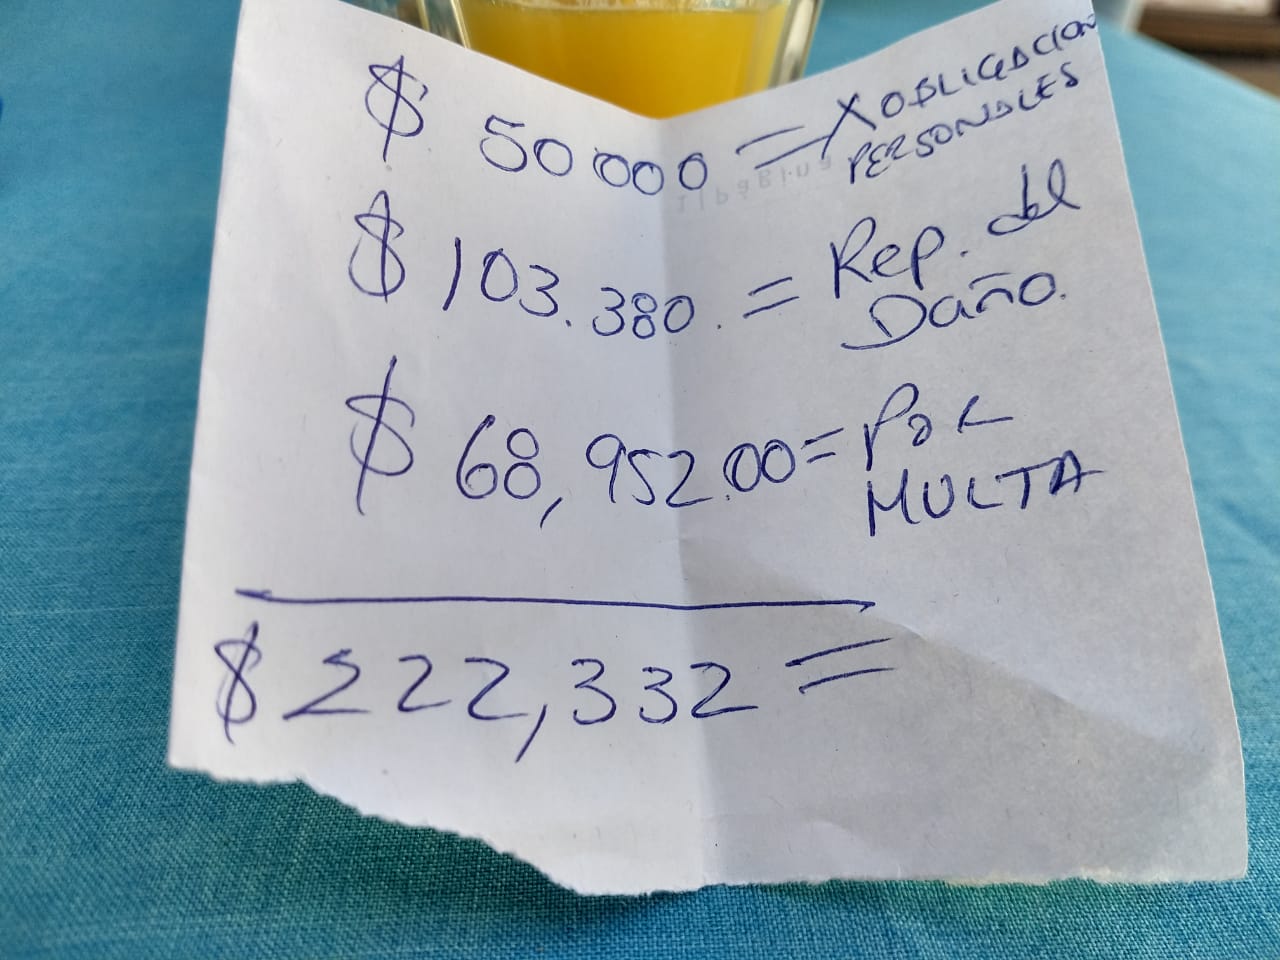 $ 50 000 = X OBLIGACION
PERSONALES
$ 103.380. = Rep. del
Daño.
$ 68,952.00 = Por
MULTA
$ 222,332 =